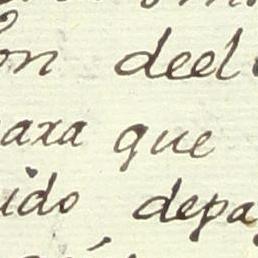 on deel
para que
ido depa